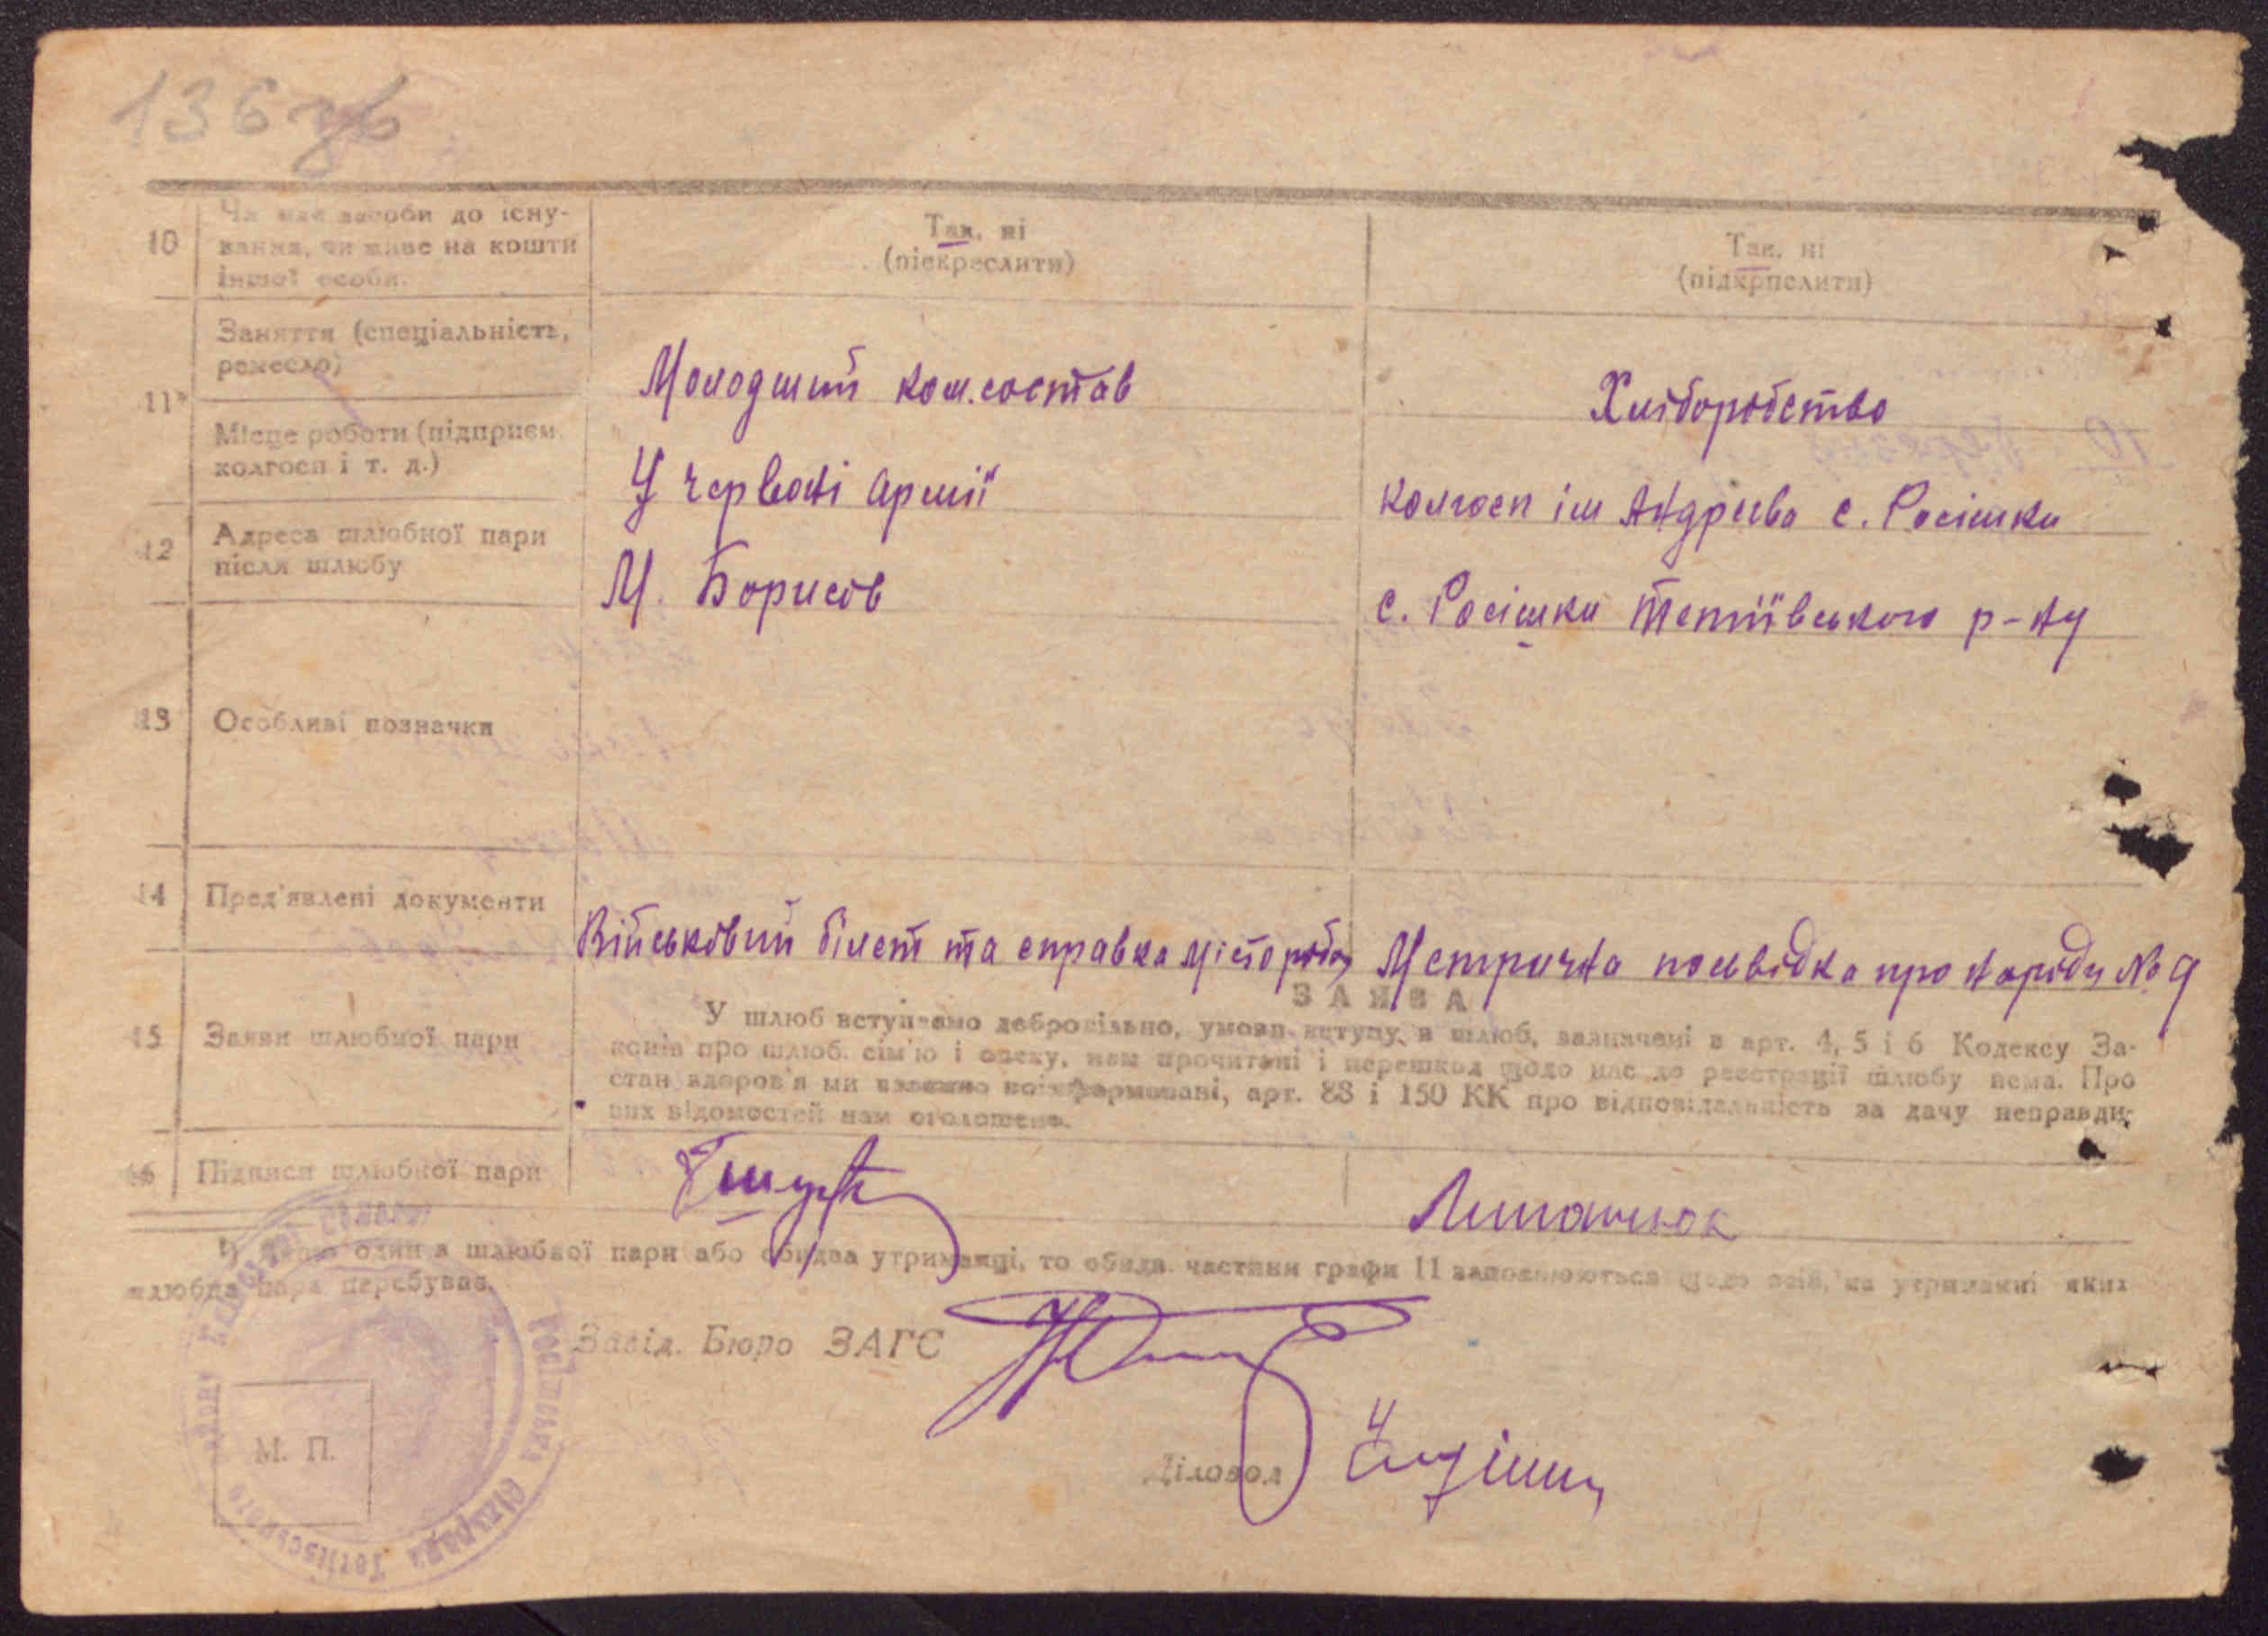 136 зв
10 Чи має засоби до існу-
вання, чи живе на кошти
іншої особи.
Так, ні
(піекреслити)
Так, ні
(підкрпслити)
11*
Заняття (спеціальність,
ремесло)
Молодший ком.состав
Хліборобство
Місце роботи (підприєм.
колгосп і т. д.)
У червоні армії
колгосп ім Андрієва с. Росішки
12 Адреса шлюбної пари
після шлюбу
М. Борисов
с. Росішки Тетіївського р-ну
13 Особливі позначки
14 Пред'явлені документи
Військовий білет та справка
Метрична посвідка про народ. № 9
15 Заяви шлюбної пари
ЗАЯВА
У шлюб вступаємо добровільно, умови вступу в шлюб, зазначені в арт. 4, 5 і 6 Кодексу За-
конів про шлюб, сім'ю і опеку, нам прочитані і перешкод щодо нас до реєстрації шлюбу нема. Про
стан здоров'я ми взаємно поінформовані, арт. 88 і 150 КК про відповідальність за дачу неправди-
вих відомостей нам оголошено.
16 Підписи шлюбної пари
один з шлюбної пари або обидва утриманці, то обидв. частини графи 11 заповнюються щодо осіб, на утриманні яких
шлюбна пара перебуває.
Завід. Бюро ЗАГС
М. П.
Діловод
Росішська сільрада Тетіївського